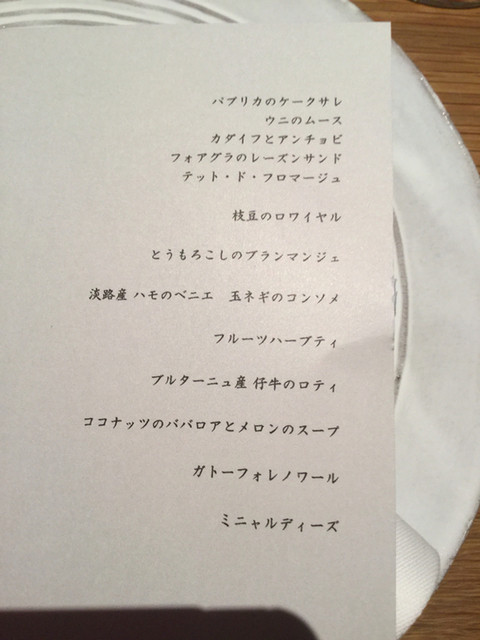 パプリカのケークサレ
ウニのムース
カダイフとアンチョビ
フォアグラのレーズンサンド
テット・ド・フロマージュ
枝豆のロワイヤル
とうもろこしのブランマンジェ
淡路産 ハモのベニエ　玉ネギのコンソメ
フルーツハーブティ
ブルターニュ産 仔牛のロティ
ココナッツのババロアとメロンのスープ
ガトーフォレノワール
ミニャルディーズ